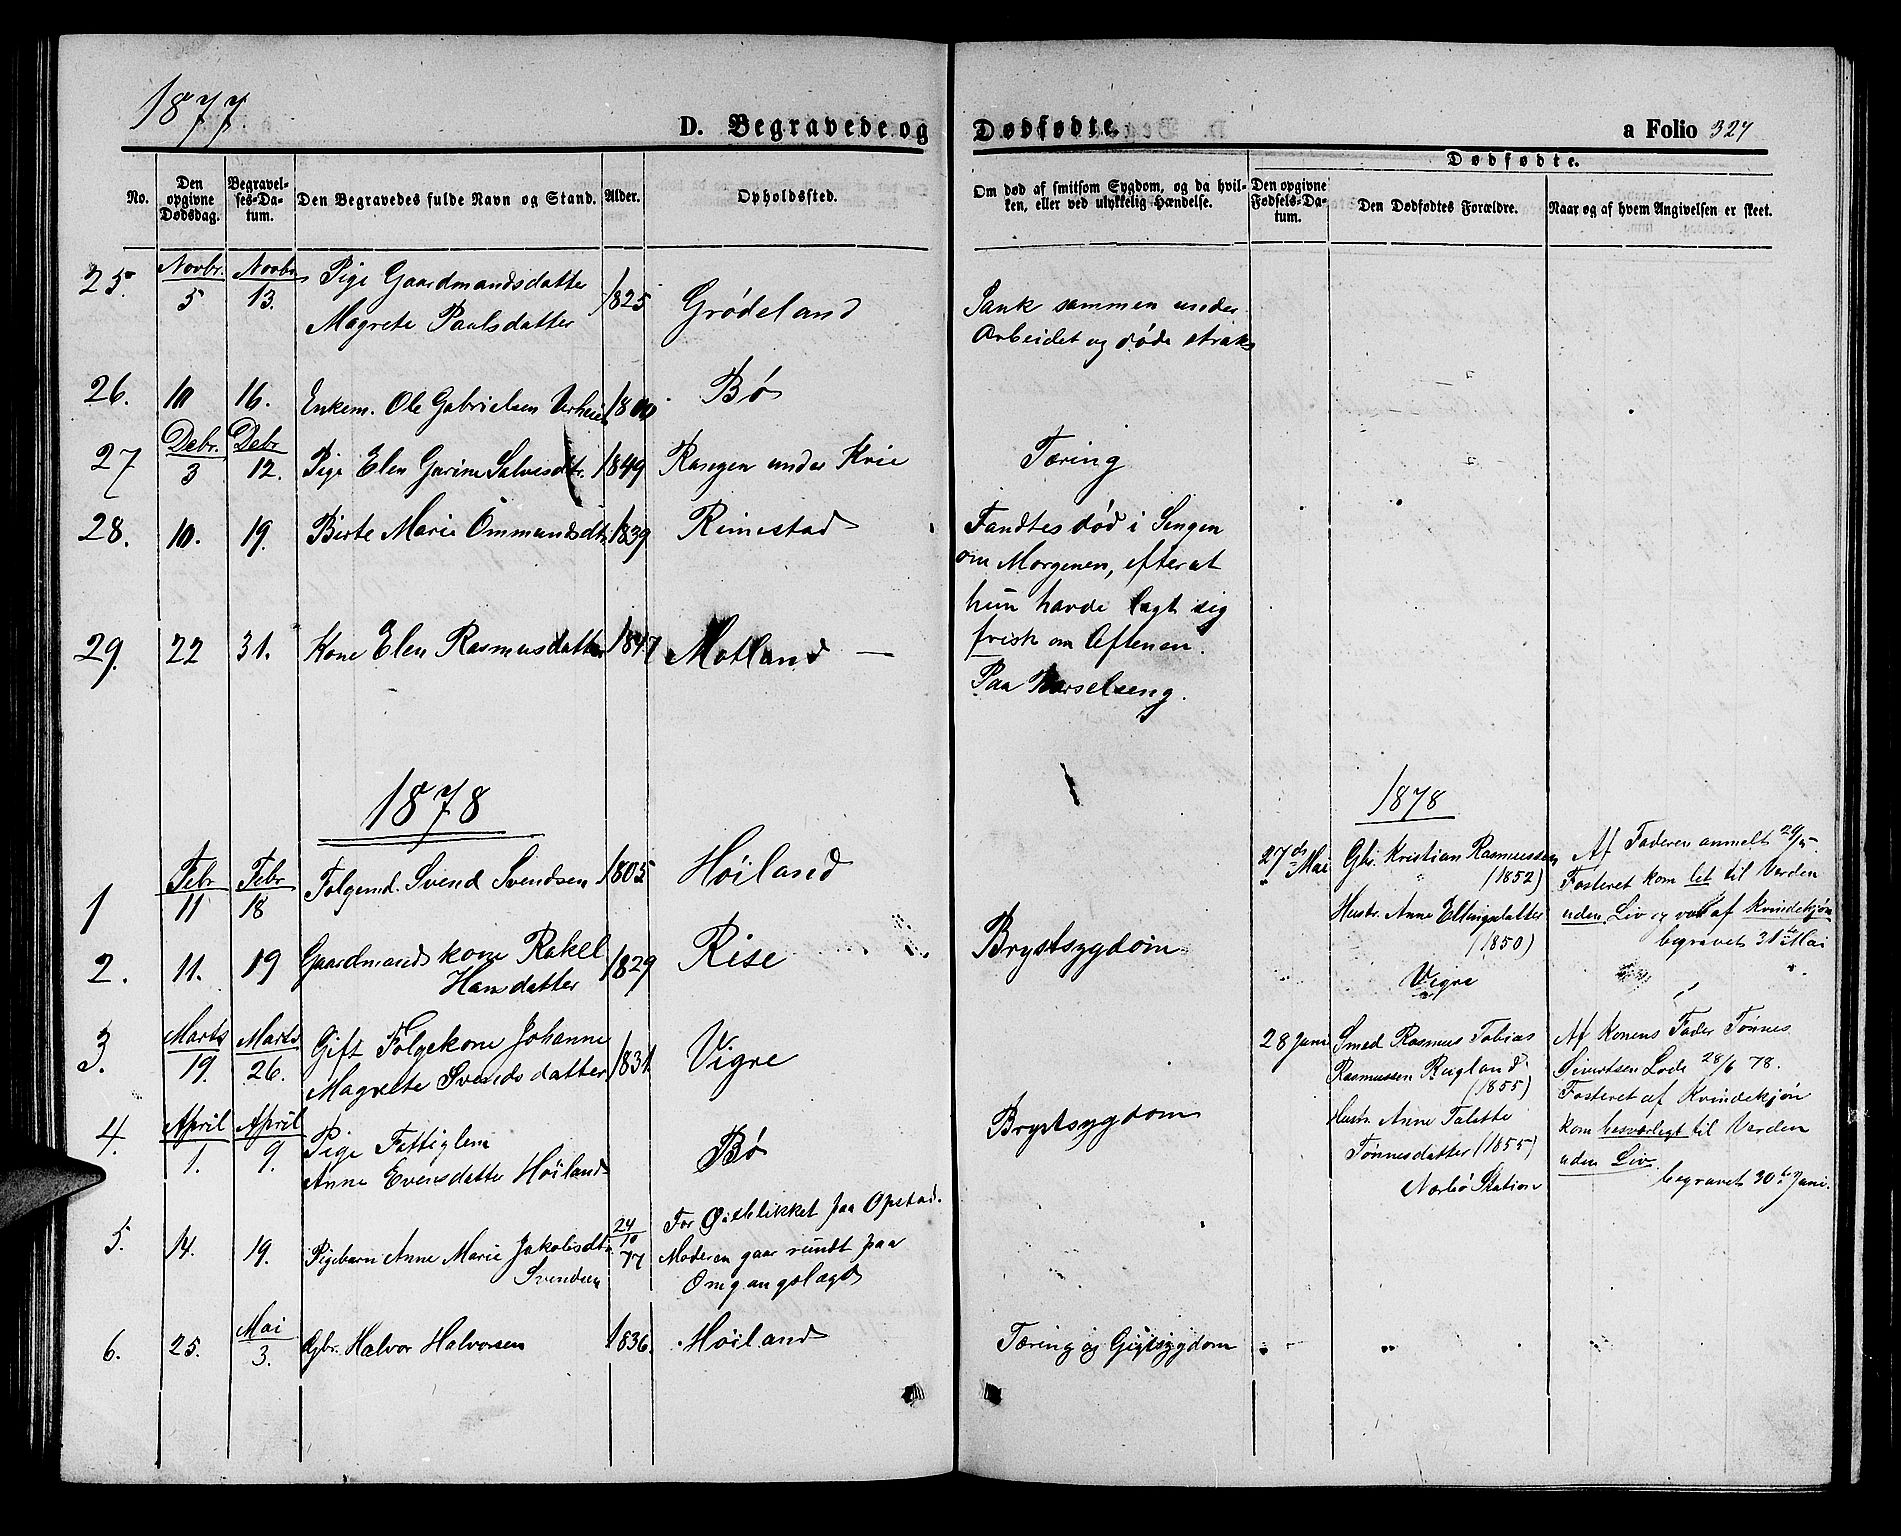 1877
D. Begravede og Dødfødte. a Folio 327
Dødfødte.
No. Den opgivne Dødsdag. Begravelses-Datum. Den Begravedes fulde Navn og Stand. Alder. Opholdssted. Om død af smitsom Sygdom, og da hvilken, eller ved ulykkelig Hændelse. Den opgivne Fødsels-Datum. Den Dødfødtes Forældre. Naar og af hvem Angivelsen er skeet.
25. Novbr. 5 Novbr. 13. Pige Gaardmandsdatter
Magrete Paulsdatter 1825 Grødeland
Sank sammen under
Arbeidet og døde straks
26. 10 16. Enkem. Ole Gabrielsen 1800 Bø
27 Debr. 3 Debr. 12. Pige Elen Gurine Salvesdtr. 1849 Rasegen under Kvie Tæring
28. 10. 19. Birte Marie Ommundsdtr 1839 Rimestad
Fandtes død i Sengen
om Morgenen, efterat
hun havde lagt sig
frisk om Aftenen.
29. 22 31. Kone Elen Rasmusdatter 1847 Motland —
Paa Barselseng.
1878
1 Febr 11 Febr 18 Folgemd. Svend Svendsen 1805 Høiland
2. 11. 19 Gaardmands kone Rakel
Hansdatter 1829 Rise Brystsygdom
3. Marts 19. Marts 26. Gift Folgekone Johanne
Magrete Svendsdatter 1831 Vigre
4. April 1. April 9. Pige Fattiglem
Anne Evensdatter Høiland Bø Brystsygdom
5. 14. 19. Pigebarn Anne Marie Jakobsdtr
Svendsen 24/10 77
For Øieblikket paa Opstad.
Moderen gaar rundt paa
Omgangslægd
6. 25. Mai 3. Gbr. Halvor Halvorsen 1836. Høiland Tæring og Gigtsygdom
1878
27 de Mai Gbr. Kristian Rasmussen
(1852)
Hustr. Anne Ellingsdatter
(1850)
Vigre
Af Faderen anmelt 29/5
Fosteret kom let til Verden
uden Liv og var af Kvindekjøn
begravet 31te Mai
28 Juni Smed Rasmus Tobias
Rasmussen Rugland
(1855)
Hustr. Anne Talette
Tønnesdatter (1855)
Nærbø Station
Af Konens Fader Tønnes
Sivertsen Lode 28/6 78.
Fosteret af Kvindekjøn
kom besværligt til Verden
uden Liv.
begravet 30te Juni.